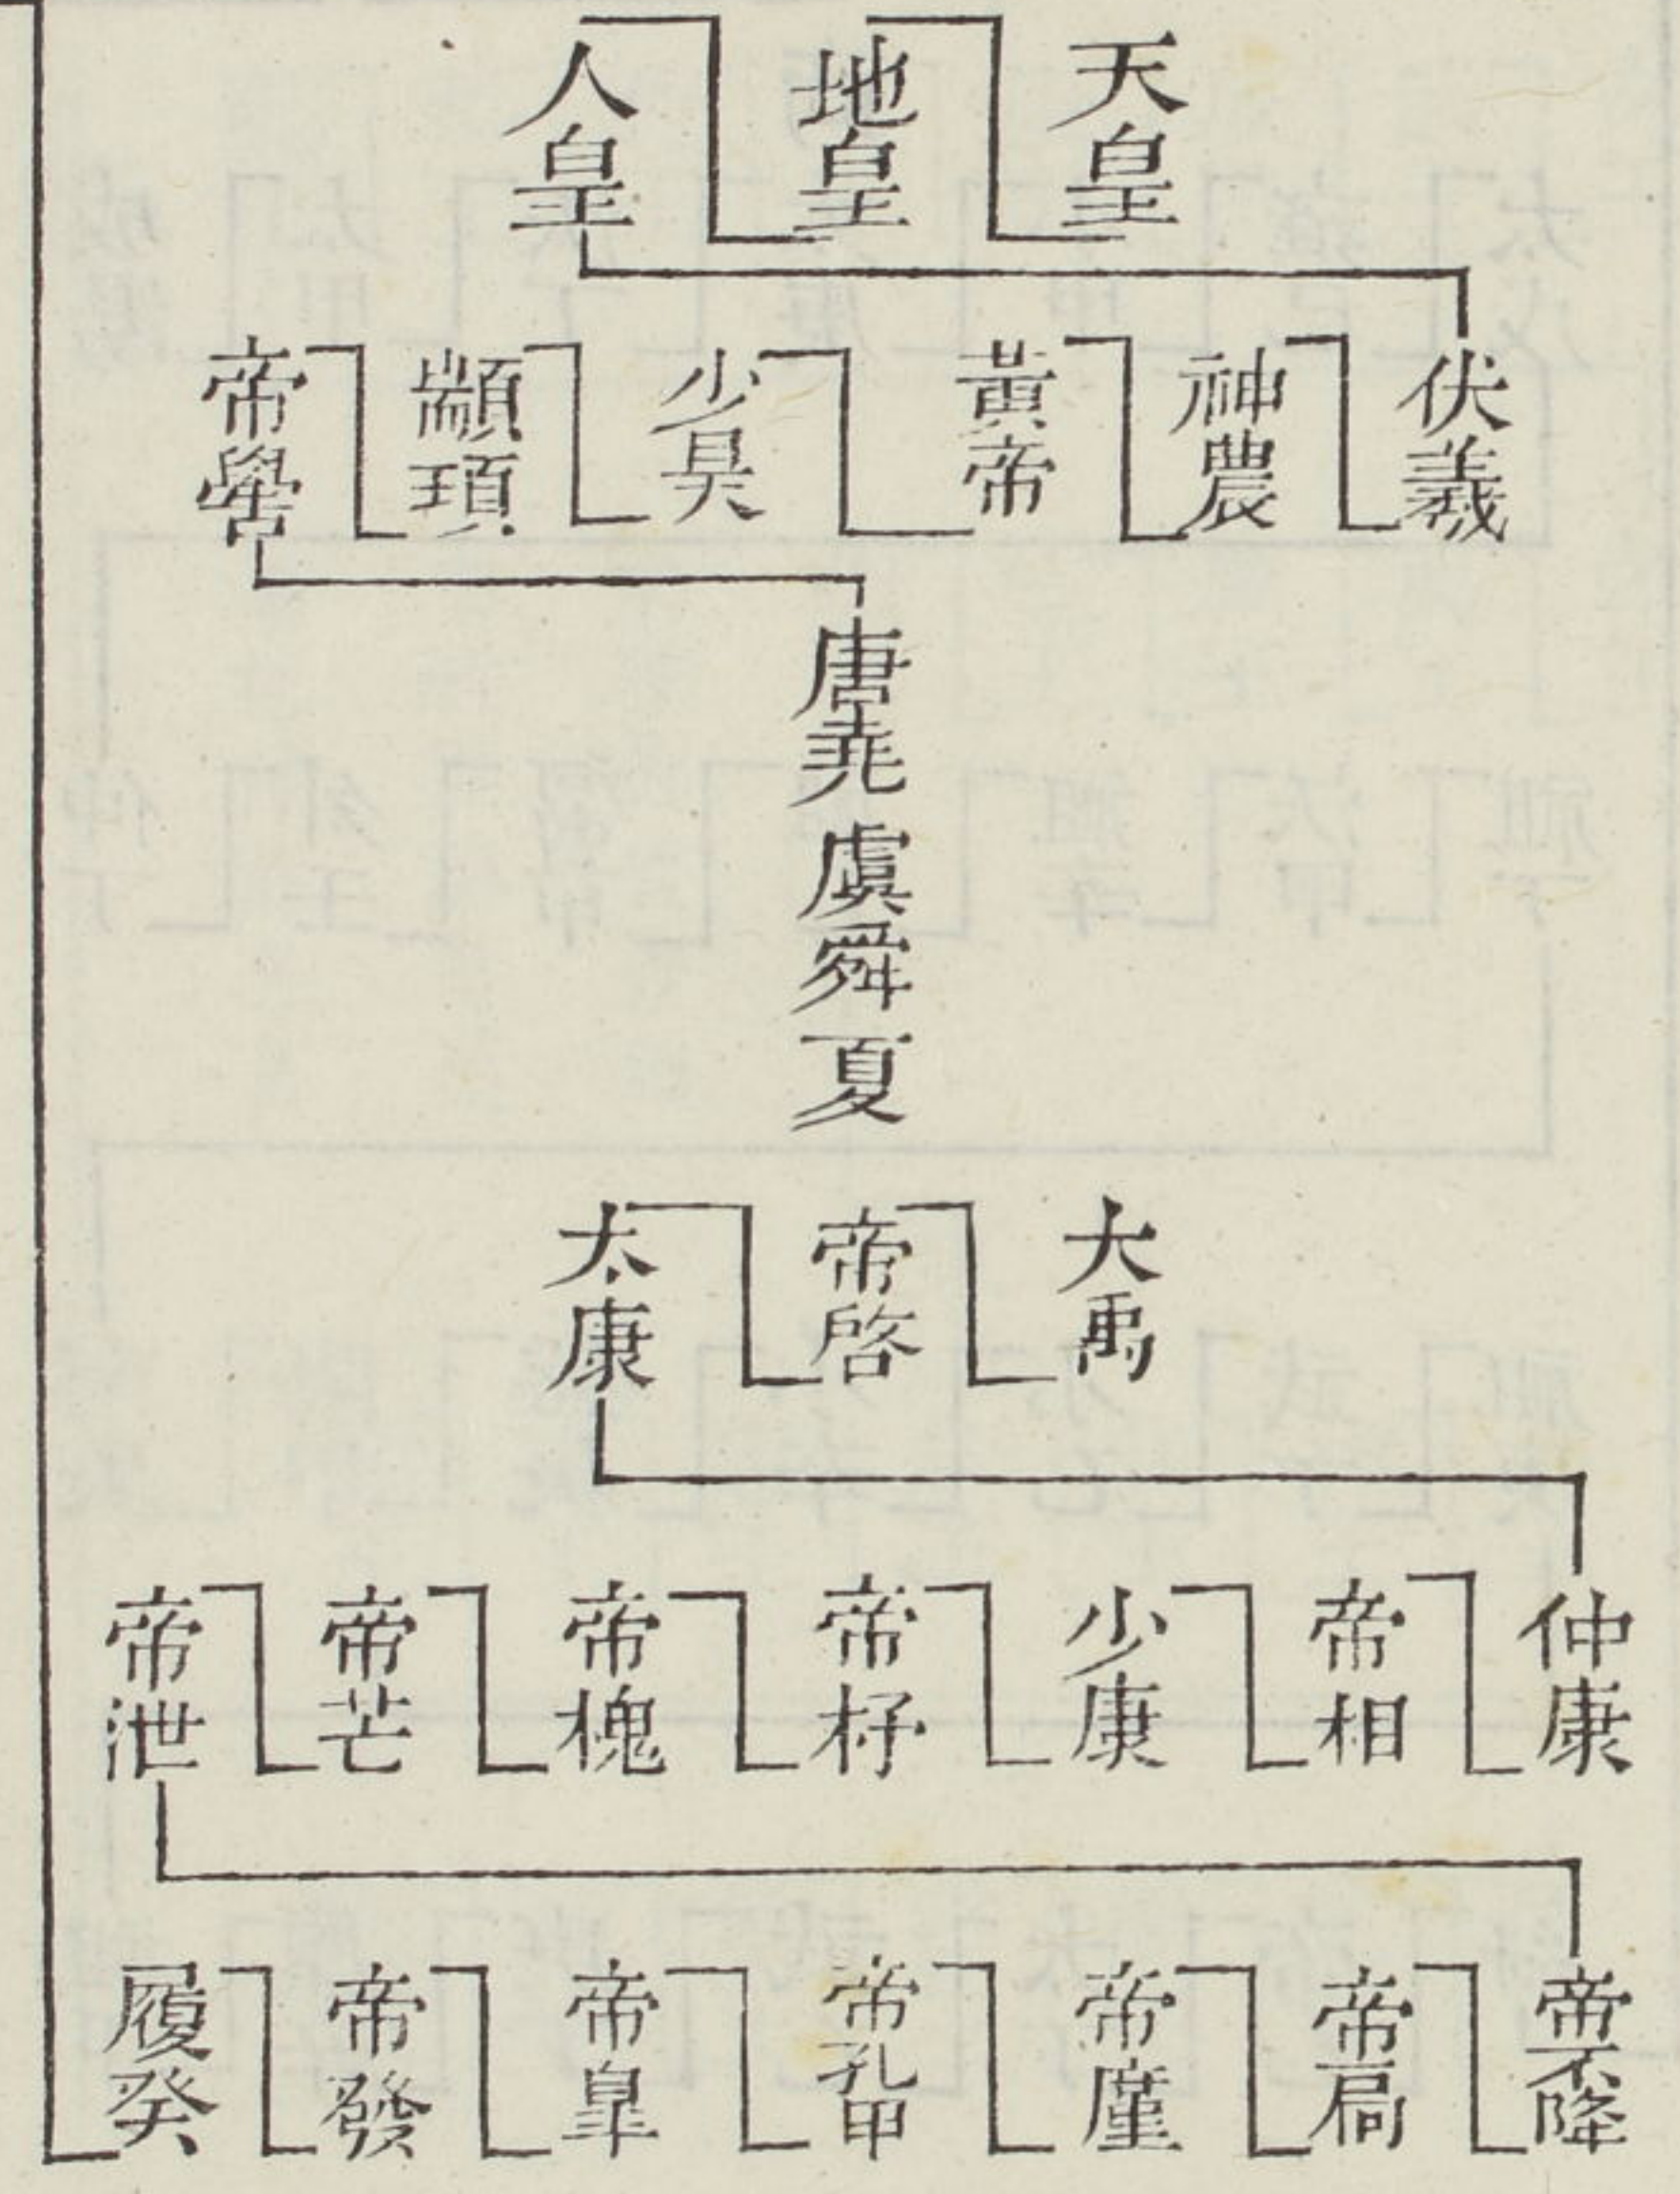 天皇
地皇
人皇
伏羲
神農
黃帝
少昊
顓頊
帝嚳
唐堯虞舜夏
大禹
帝啓
太康
仲康
帝相
少康
帝杼
帝槐
帝芒
帝泄
帝不降
帝扃
帝廑
帝孔甲
帝皐
帝發
履癸